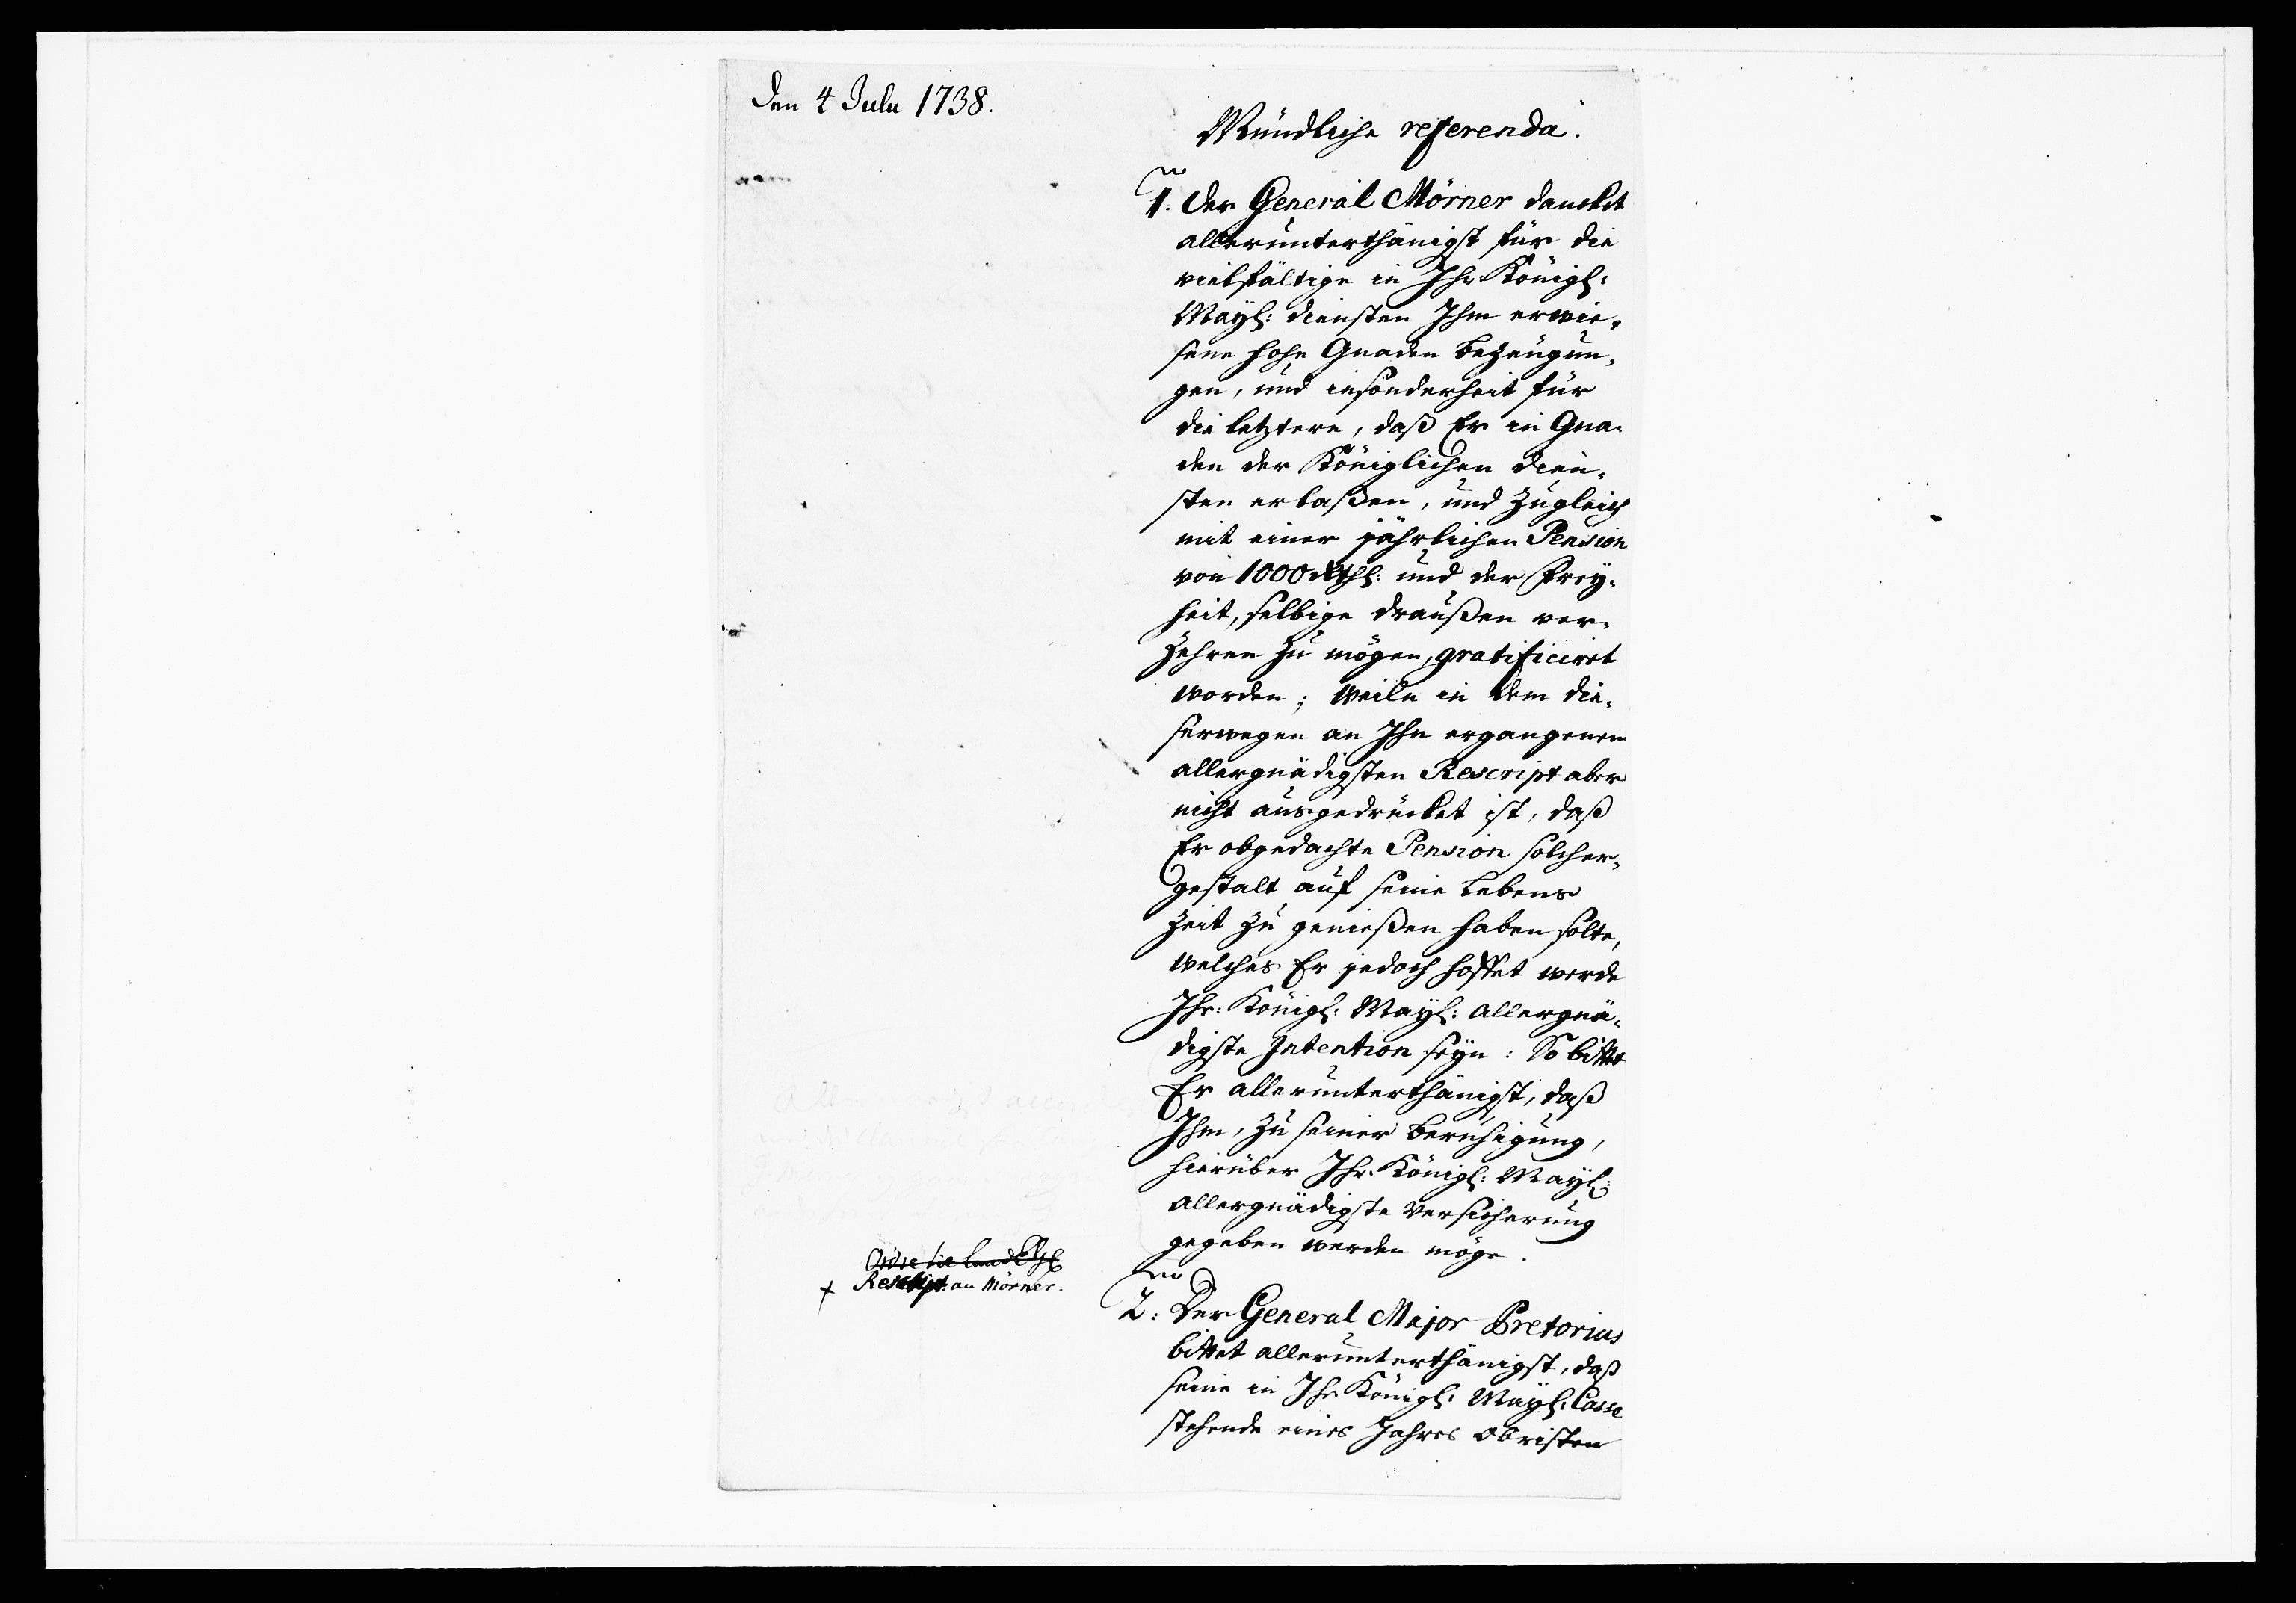 Den 4 Julii 1738.
Mündliche referenda.
1. Der General Mörner dancket
allerunterthänigst für die
vielfältige in Ihr Königl:
Mayl: diensten Ihm erwie-
sene hohe Gnaden bezeugun-
gen, und insonderheit für
die letztere, daß Er in Gna-
den der Königlichen dien-
sten erlaßen, und zugleich
mit einer jährlichen Pension
von 1000 Rthl: und der Frey-
heit, selbige draußen ver-
zehren zu mögen, gratificiret
worden; weile in dem die-
serwegen an Ihn ergangenen
allergnädigsten Rescript aber
nicht ausgedrücket ist, daß
Er obgedachte Pension solcher-
gestalt auf seine Lebens
Zeit zu genießen haben solte,
welches Er jedoch hoffet werde
Ihr: Königl: Mayl: allergnä-
digste Intention seyn: So bittet
Er allerunterthänigst, daß
Ihm, zu seiner Beruhigung,
hierüber Ihr Königl: Mayl:
allergnädigste Versicherung
gegeben werden möge.
Ordre
+ Rescript an Mörner.
2: Der General Major Pretorius
bittet allerunterthänigst, daß
seine in Ihr Königl: Mayl: Casse
stehende eines Jahres Obristen